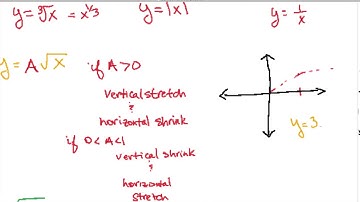 y = ∛x = x^1/3
y = |x|
y = 1/x
y = A√x if A > 0
vertical stretch
&
horizontal shrink
if 0 < A < 1
vertical shrink
&
horizontal
stretch
y = 3